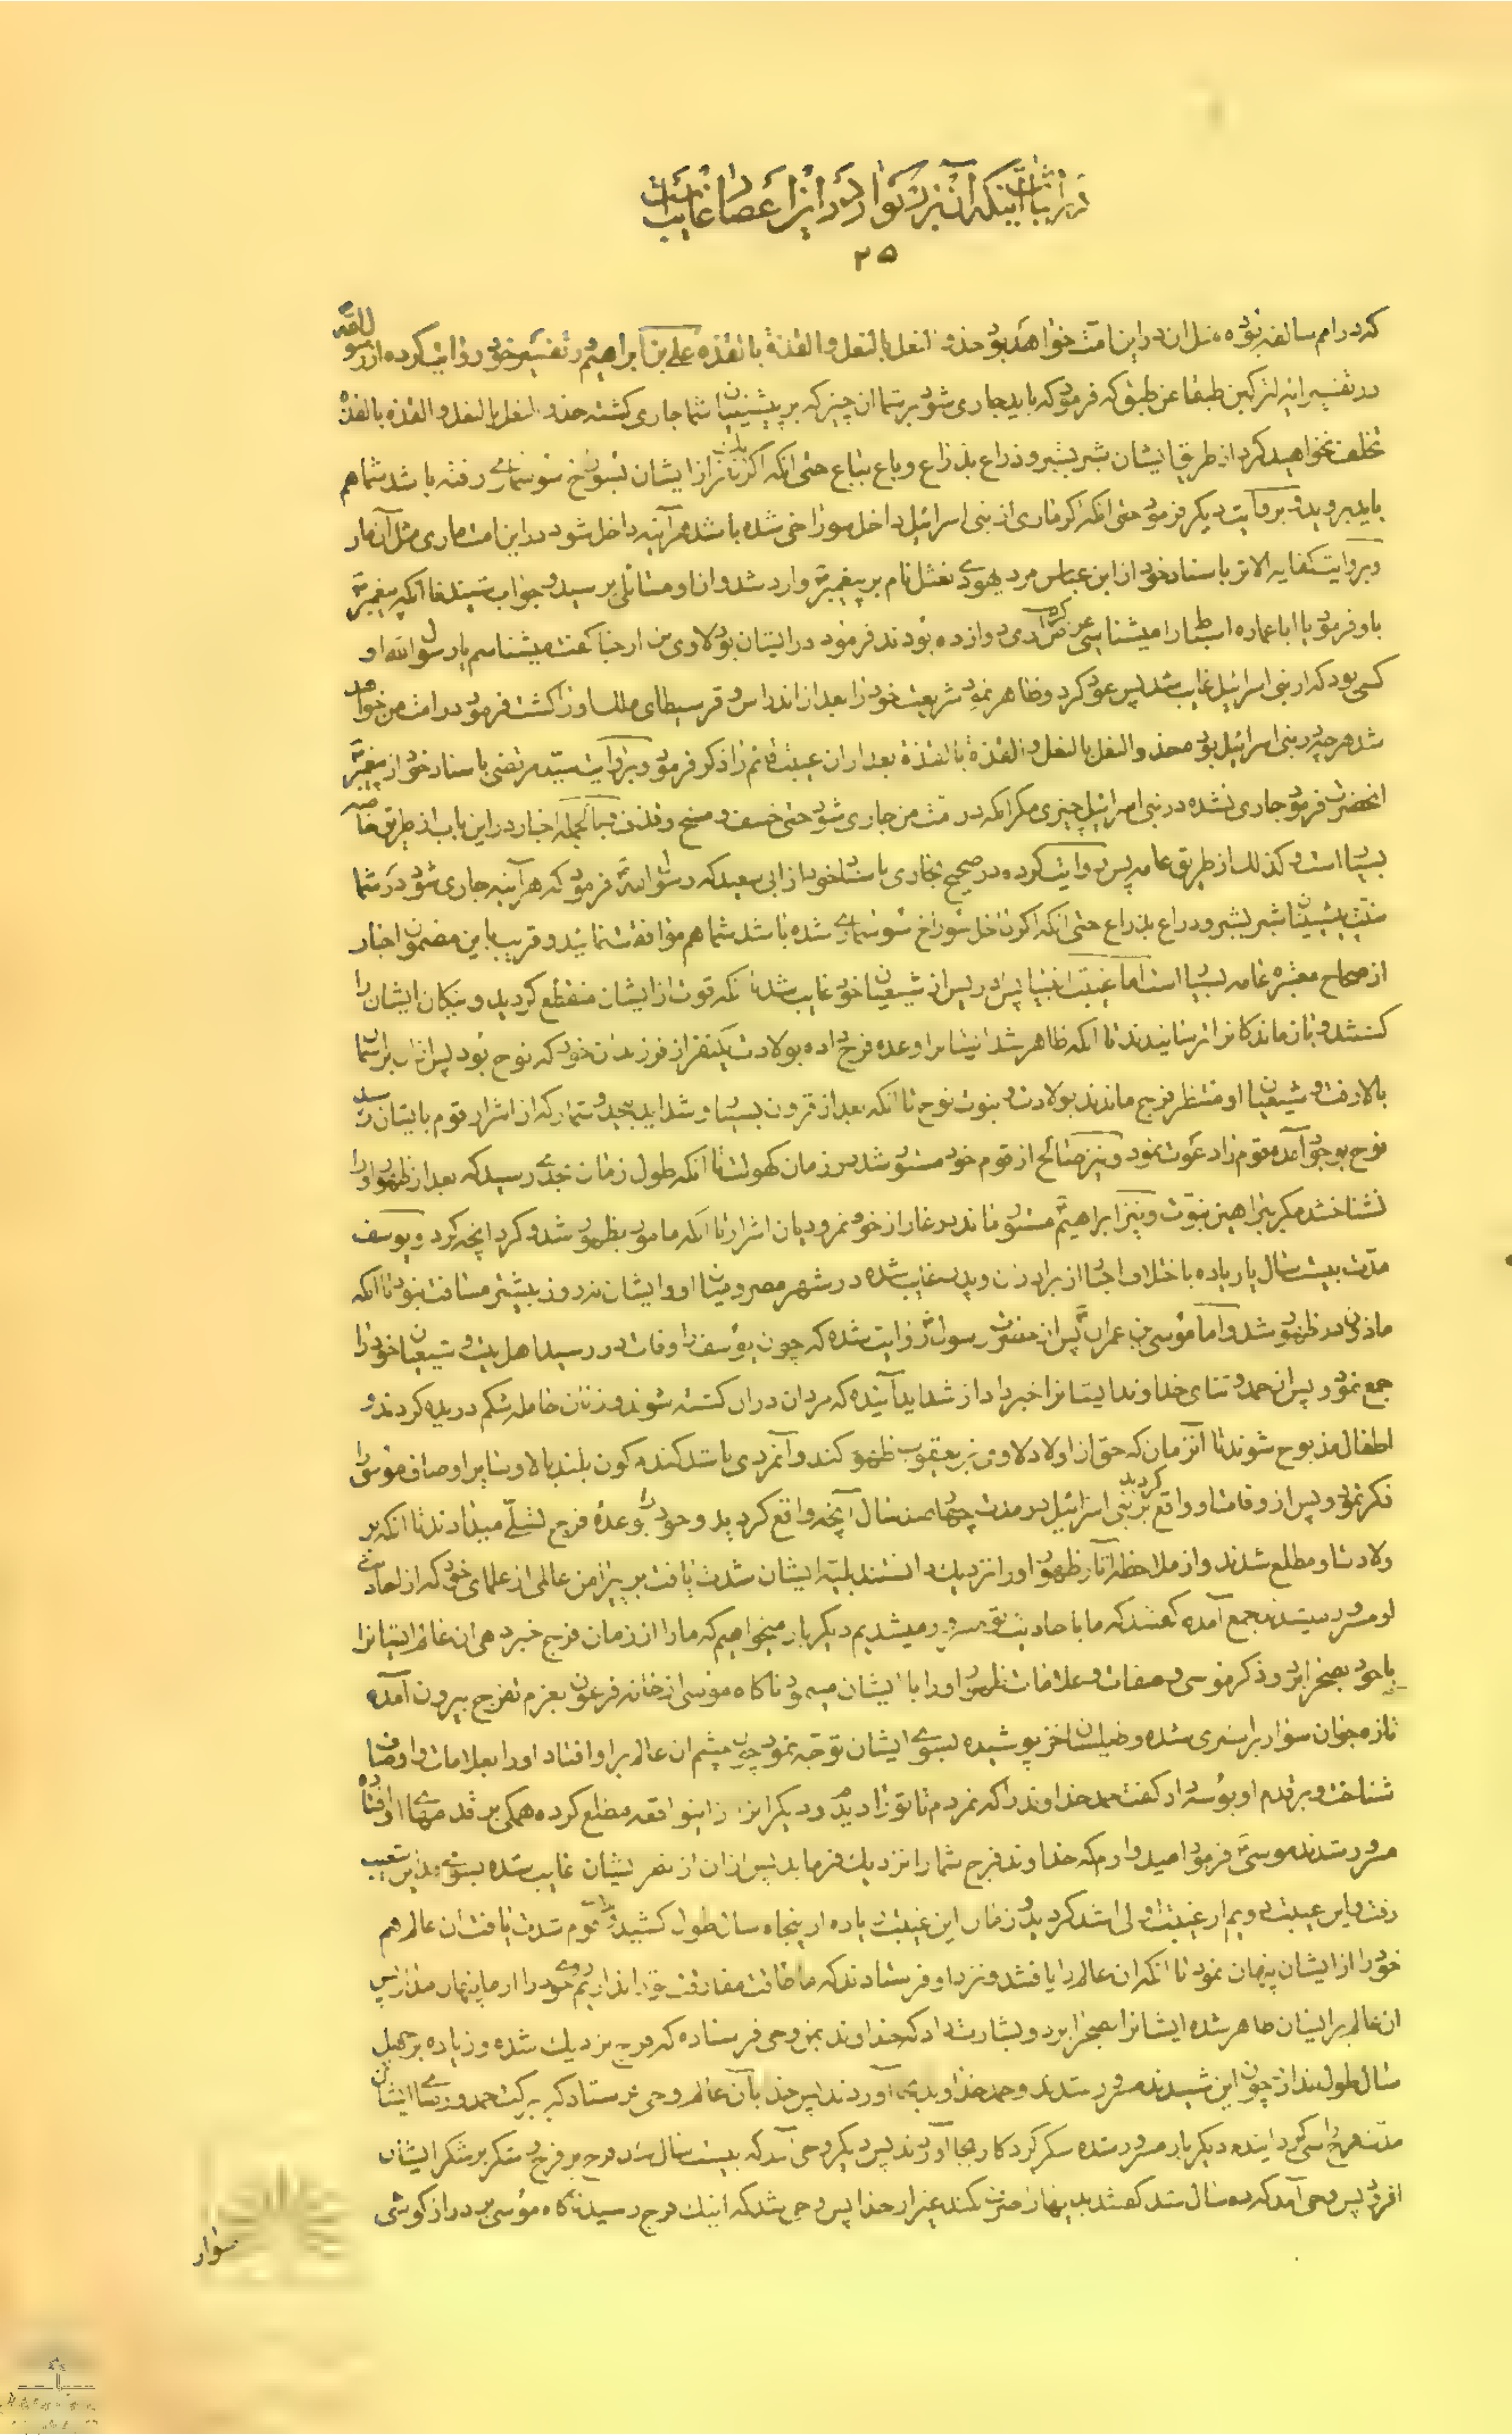 در اثبات اینکه آن بزرگوار در این اعصار غایب است
۲۵
که در امم سالفه بوده مثل آن در این امت خواهد بود حذو النعل بالنعل والقذة بالقذه علی بن ابراهیم در تفسیر خود روایت کرده از رسول الله
در تفسیر ایه لترکبن طبقا عن طبق که فرمود که باید جاری شود بر شما ان چیز که بر پیشینیان شما جاری کشته حذو النعل بالنعل و القذه بالقذه
تخلف نخواهید کرد از طریق ایشان شبر بشبر و ذراع بذراع و باع بباع حتی انکه اکر از ایشان بسوراخ سوسماری رفته باشد شما هم
باید بروید و بروایت دیکر فرمود حتی انکه اکر ماری از بنی اسرائیل داخل سوراخی شده باشد هر آینه داخل شود در این امت ماری مثل آن مار
و بروایت کفایه الاثر باسناد خود از ابن عباس مرد یهودی نعثل نام بر پیغمبر وارد شد و از او مسائلی پرسید و جواب شنید تا انکه پیغمبر
باو فرمود یا اباعماره اسباط را میشناسی عرض کرد دوازده بودند فرمود در ایشان بود لاوی بن ارحیا کفت میشناسم یا رسول الله او
کسی بود که از بنی اسرائیل غایب شد پس عود کرد و ظاهر نمود شریعت خود را بعد از اندراس و قرسیطای ملک را کشت فرمود در امت من خواهد
شد هر چه در بنی اسرائیل بود حذو النعل بالنعل و القذة بالقذة بعد از ان غیبت قائم را ذکر فرمود و بروایت سید مرتضی باسناد خود از پیغمبر
انحضرت فرمود جاری نشده در بنی اسرائیل چیزی مکر انکه در امت من جاری شود حتی خسف و مسخ و قذف و بالجمله اخبار در این باب از طریق خاصه
بسیار است و کذلک از طریق عامه پس روایت کرده در صحیح بخاری باسناد خود از ابی سعید که رسول الله فرمود که هر آینه جاری شود در شما
سنت پیشینیان شبر بشبر و ذراع بذراع حتی انکه اکر داخل سوراخ سوسماری شده باشد شما هم موافقت نمائید و قریب باین مضمون اخبار
از صحاح معتبره عامه بسیار است اما غیبت انبیا پس ادریس از شیعیان خود غایب شد تا انکه قوت از ایشان منقطع کردید و نیکان ایشان را
کشتند و باز ماندکان را ترسانیدند تا انکه ظاهر شد ایشان را وعده فرج داده بولادت یکنفر از فرزندان خود که نوح بود پس از ان بر آسمان
بالا رفت و شیعیان او منتظر فرج ماندند بولادت و نبوت نوح تا انکه بعد از قرون بسیار و شداید بیحد و شمار که از اشرار قوم بایشان رسید
نوح بوجود آمد و قوم را دعوت نمود و نیز صالح از قوم خود مستور شد در زمان کهولت تا انکه طول زمان بحدی رسید که بعد از ظهور او را
نشناختند مکر ببراهین نبوت و نیز ابراهیم مستور ماند در غار از خوف نمرودیان اشرار تا انکه مامور بظهور شد و کرد انچه کرد و یوسف
مدت بیست سال یا زیاده باختلاف اخبار از برادران و پدر غایب شده در شهر مصر و میان او و ایشان نه روز بیشتر مسافت نبود تا انکه
ماذون در ظهور شد و اما موسی بن عمران پس از حضرت رسول روایت شده که چون یوسف را وفات در رسید اهل بیت و شیعیان خود را
جمع نمود و پس از حمد و ثنای خداوند ایشانرا خبر داد از شداید آینده که مردان در ان کشته شوند و زنان حامله شکم دریده کردند و
اطفال مذبوح شوند تا آنزمان که حق از اولاد لاوی بن یعقوب ظهور کند و آنمردی باشد کندم کون بلند بالا و سایر اوصاف موسی را
ذکر نمود و پس از وفات او واقع کردید بر بنی اسرائیل در مدت چهارصد سال آنچه واقع کردید و خود را بوعدهٔ فرج تسلی میدادند تا انکه بر
ولادت او مطلع شدند و از ملاحظه آثار ظهور او را نزدیک دانستند بلیه ایشان شدت یافت پس پیرامن عالمی از علمای خود که از احادیث
او مسرور میشدند جمع آمده کفتند که ما باحادیث تو مسرور میشدیم دیکر بار میخواهیم که ما را از زمان فرج خبر دهی ان عالم ایشانرا
با خود بصحرا برد و ذکر موسی و صفات و علامات ظهور او را با ایشان مینمود ناکاه موسی از خانه فرعون بعزم تفرج بیرون آمده
تازه جوان سوار بر استری شده و طیلسان خز پوشیده بسوی ایشان توجه نمود چون چشم ان عالم بر او افتاد او را بعلامات و اوصاف
شناخت و بر قدم او بوسه داد کفت حمد خداوند را که نمردم تا تو را دیدم و دیکران را از اینواقعه مطلع کرده همکی بر قدمهای او افتاده
مسرور شدند موسی فرمود امیدوارم که خداوند فرج شما را نزدیک فرماید پس از ان از نظر ایشان غایب شده بسوی مداین شعیب
رفت و این غیبت دویم از غیبت اولی اشد کردید و زمان این غیبت زیاده از پنجاه سال طول کشید و قوم شدت یافت ان عالم هم
خود را از ایشان پنهان نمود تا انکه ان عالم را یافتند و نزد او فرستادند که ما طاقت مفارقت تو را نداریم روی خود را از ما پنهان مدار پس
ان عالم بر ایشان ظاهر شده ایشانرا بصحرا برد و بشارت داد که خداوند بمن وحی فرستاده که فرج نزدیک شده و زیاده بر چهل
سال طول ندارد چون این شنیدند مسرور شدند و حمد خداوند بجا آوردند پس خدا بآن عالم وحی فرستاد که ببرکت حمد و رضای ایشان
مدت فرج را سی کردانیدم دیکر بار مسرور شده شکر کردکار بجا آوردند پس دیکر وحی آمد که بیست سال شد فرج بر شکر ایشان
افزود پس وحی آمد که ده سال شد کفتند پنهان صرف نکند غیر از خدا پس وحی شد که اینک فرج رسید ناکاه موسی بر دراز کوشی
سوار